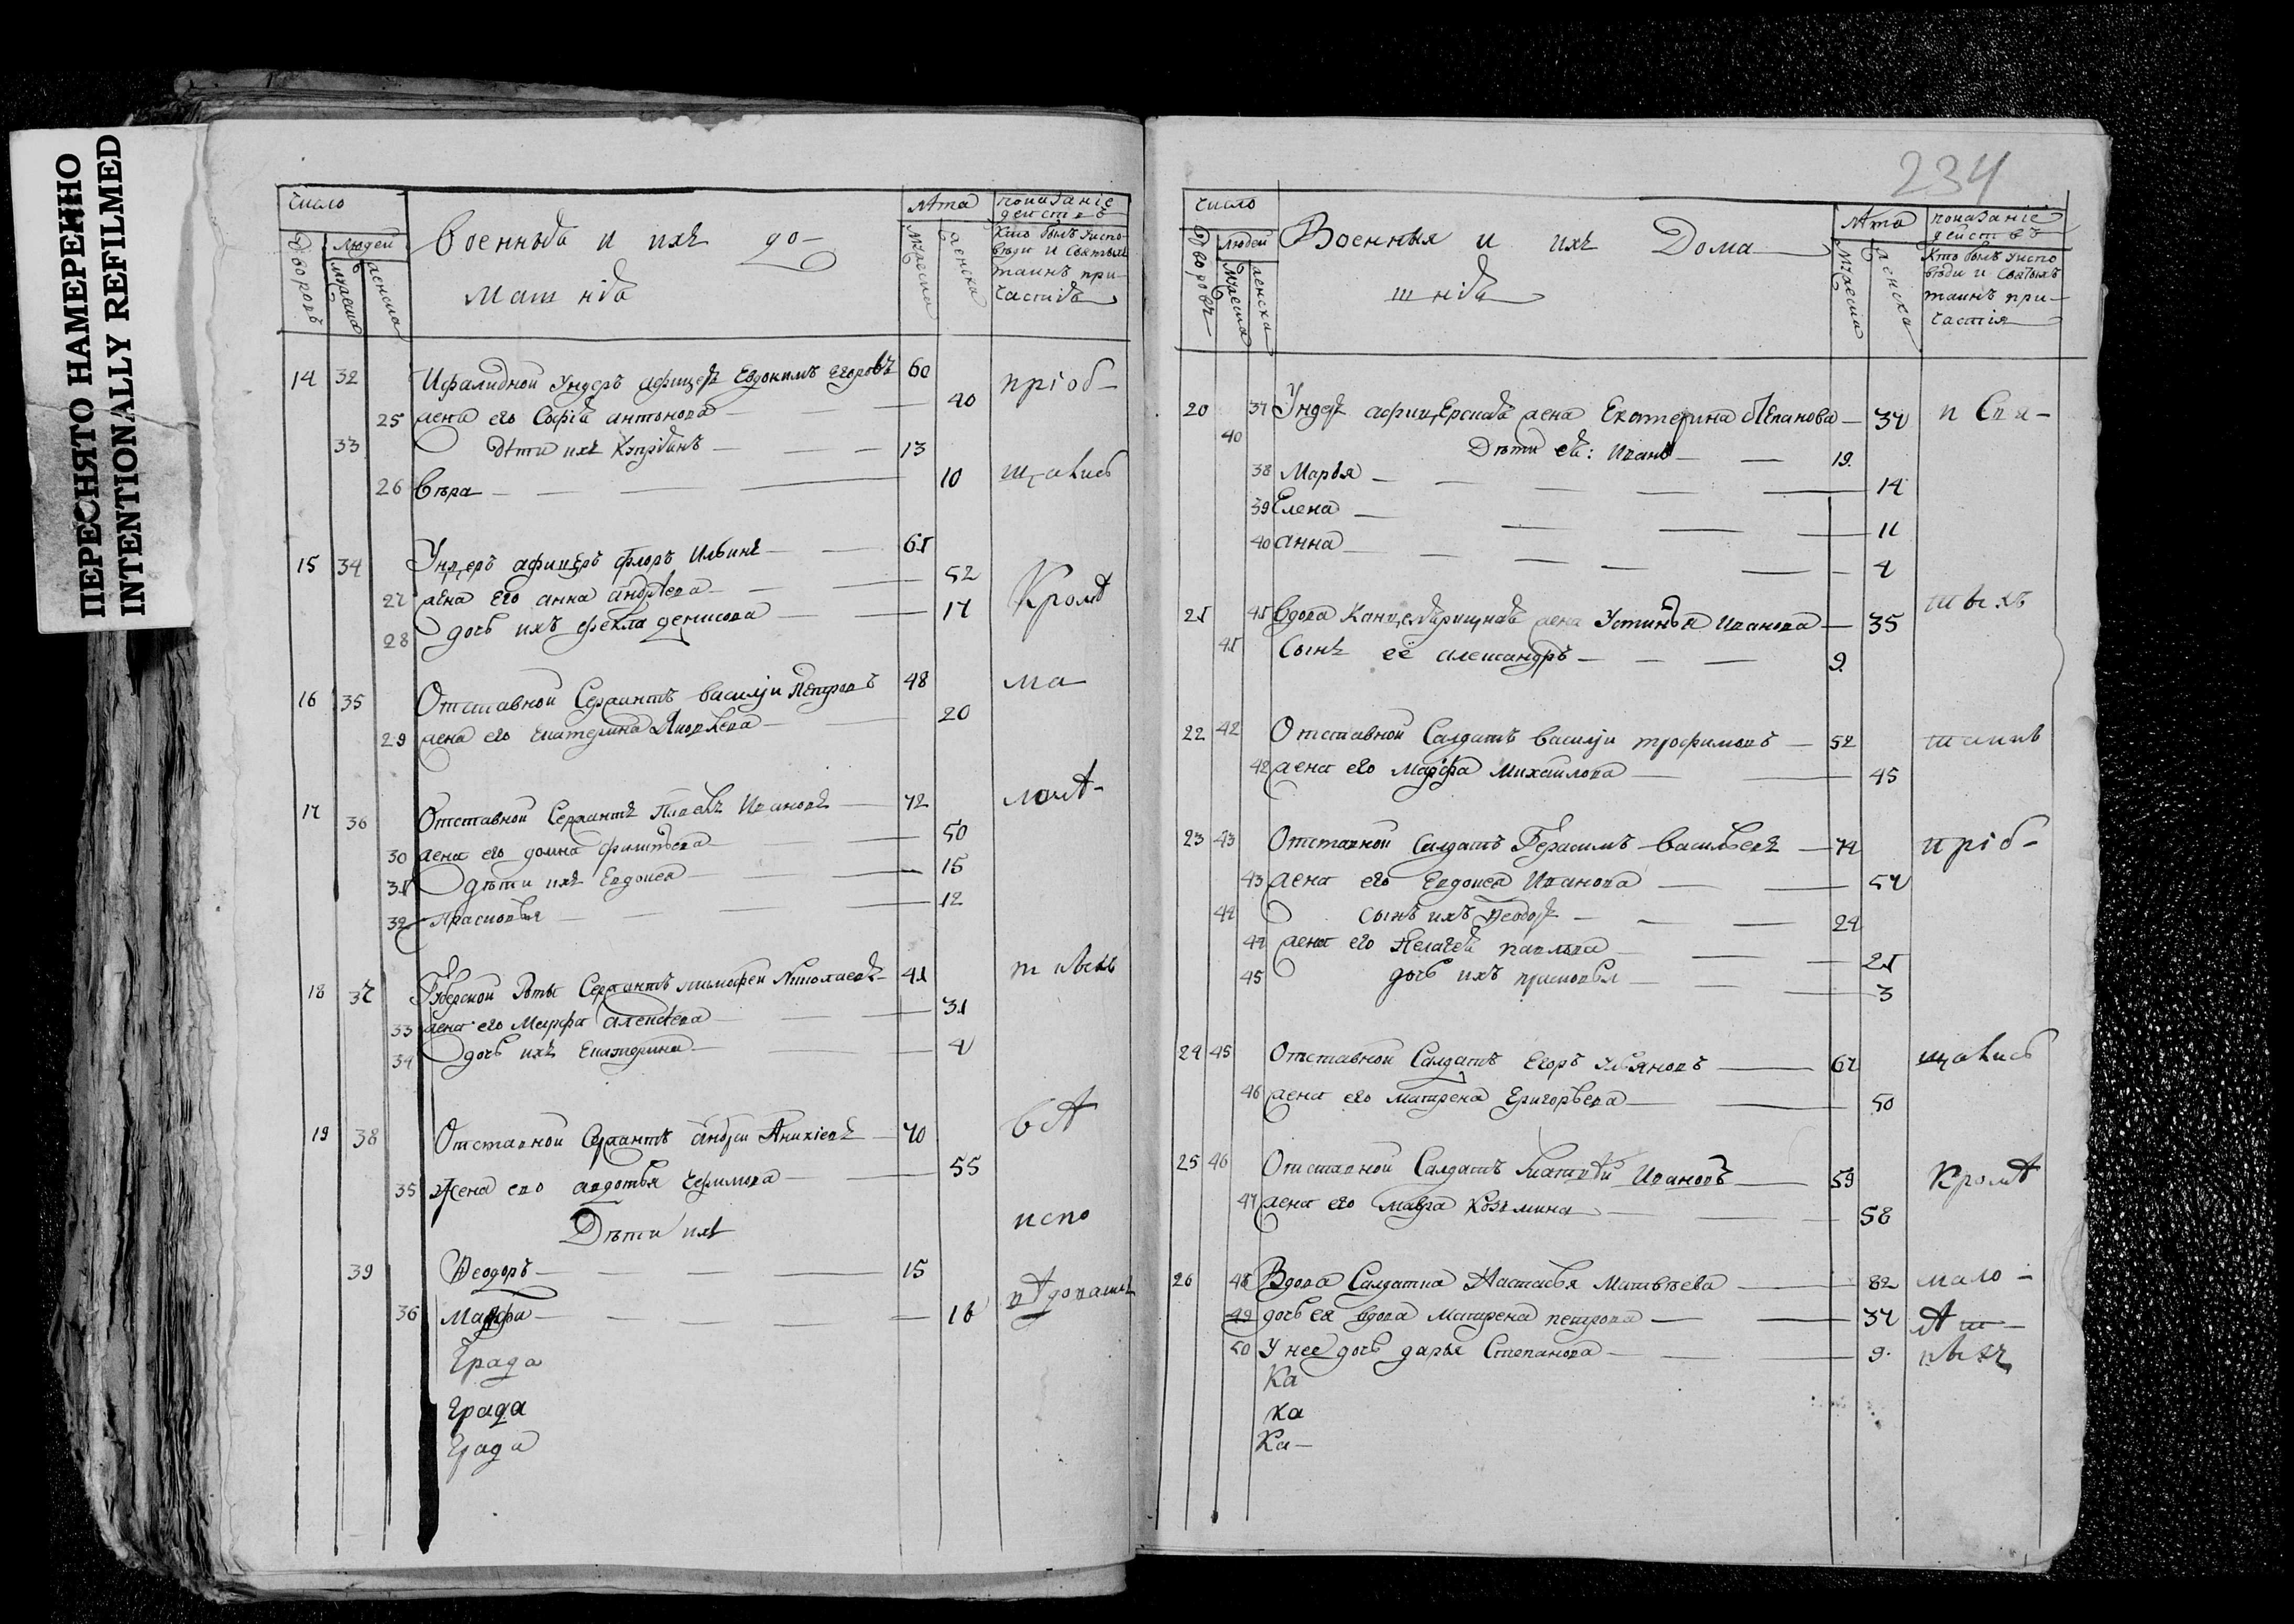 ПЕРЕСНЯТО НАМЕРЕННО
INTENTIONALLY REFILMED
число
дворовъ
людей
мужеска
женска
Военныя и ихъ до-
машнія
лѣта
мужеска
женска
показаніе
действъ
кто былъ уиспо-
вѣди и святыхъ
таинъ при-
частія
14 32 Ифалидной Ундеръ афицеръ Евдокимъ Егоровъ 60 пріоб-
25 жена его Софія антонова 40
33 дѣти ихъ Кипріянъ 13
26 Вѣра 10 щались
15 34 Ундеръ афицеръ флоръ Ильинъ 61
27 жена его анна андрѣева 52 Кромѣ
28 дочь ихъ фекла денисова 17
16 35 Отставной Сержантъ василіи Петровъ 48 ма
29 жена его Екатерина Яковлева 20
17 36 Отставной Сержантъ Павелъ Ивановъ 72 лолѣ-
30 жена его домна филипьева 50
31 дѣти ихъ Евдокея 15
32 Прасковья 12
18 37 Сержантъ тимофеи Николаевъ 41 тныхъ
33 жена его Марфа алексѣева 31
34 дочь ихъ Екатерина 4
19 38 Отставной Сержантъ андреи Аникіевъ 70 бѣ
35 Жена ево авдотья Ефимова 55
Дѣти ихъ испо
39 Ѳеодоръ 15
36 Марфа 16
Града
града
Града
234
число
дворовъ
людей
мужеска
женска
Военныя и ихъ Дома
шнія
лѣта
мужеска
женска
показаніе
действъ
Кто былъ уиспо
вѣди и Святыхъ
таинъ при-
частія
20 37 Ундеръ афицерская жена Екатерина Степанова 37 и Свя-
40 Дѣти ея: Иванъ 19
38 Марья 14
39 Елена 11
40 анна 4
21 41 Вдова жена Устинья Иванова 35 тыхъ
41 Сынъ ее александръ 9
22 42 Отставной Салдатъ василіи трофимовъ 52 таинъ
42 жена его Марфа Михаилова 45
23 43 Отставной Салдатъ Герасимъ васильевъ 74 пріоб-
43 жена его Евдокея Иванова 54
44 сынъ ихъ Ѳеодоръ 24
44 жена его Пелагея павлова 21
45 дочь ихъ прасковья 3
24 45 Отставной Салдатъ Егоръ Ульяновъ 67 щались
46 жена его матрена Григорьева 50
25 46 Отставной Салдатъ Матвѣи Ивановъ 59 Кромѣ
47 жена его мавра Козьмина 58
26 48 Вдова Салдатка Настасья Матвѣева 82 мало-
49 дочь ея вдова Матрена петрова 37 лѣт-
50 У нее дочь дарья Степанова 9 ныхъ
Ка
ка
Ка-